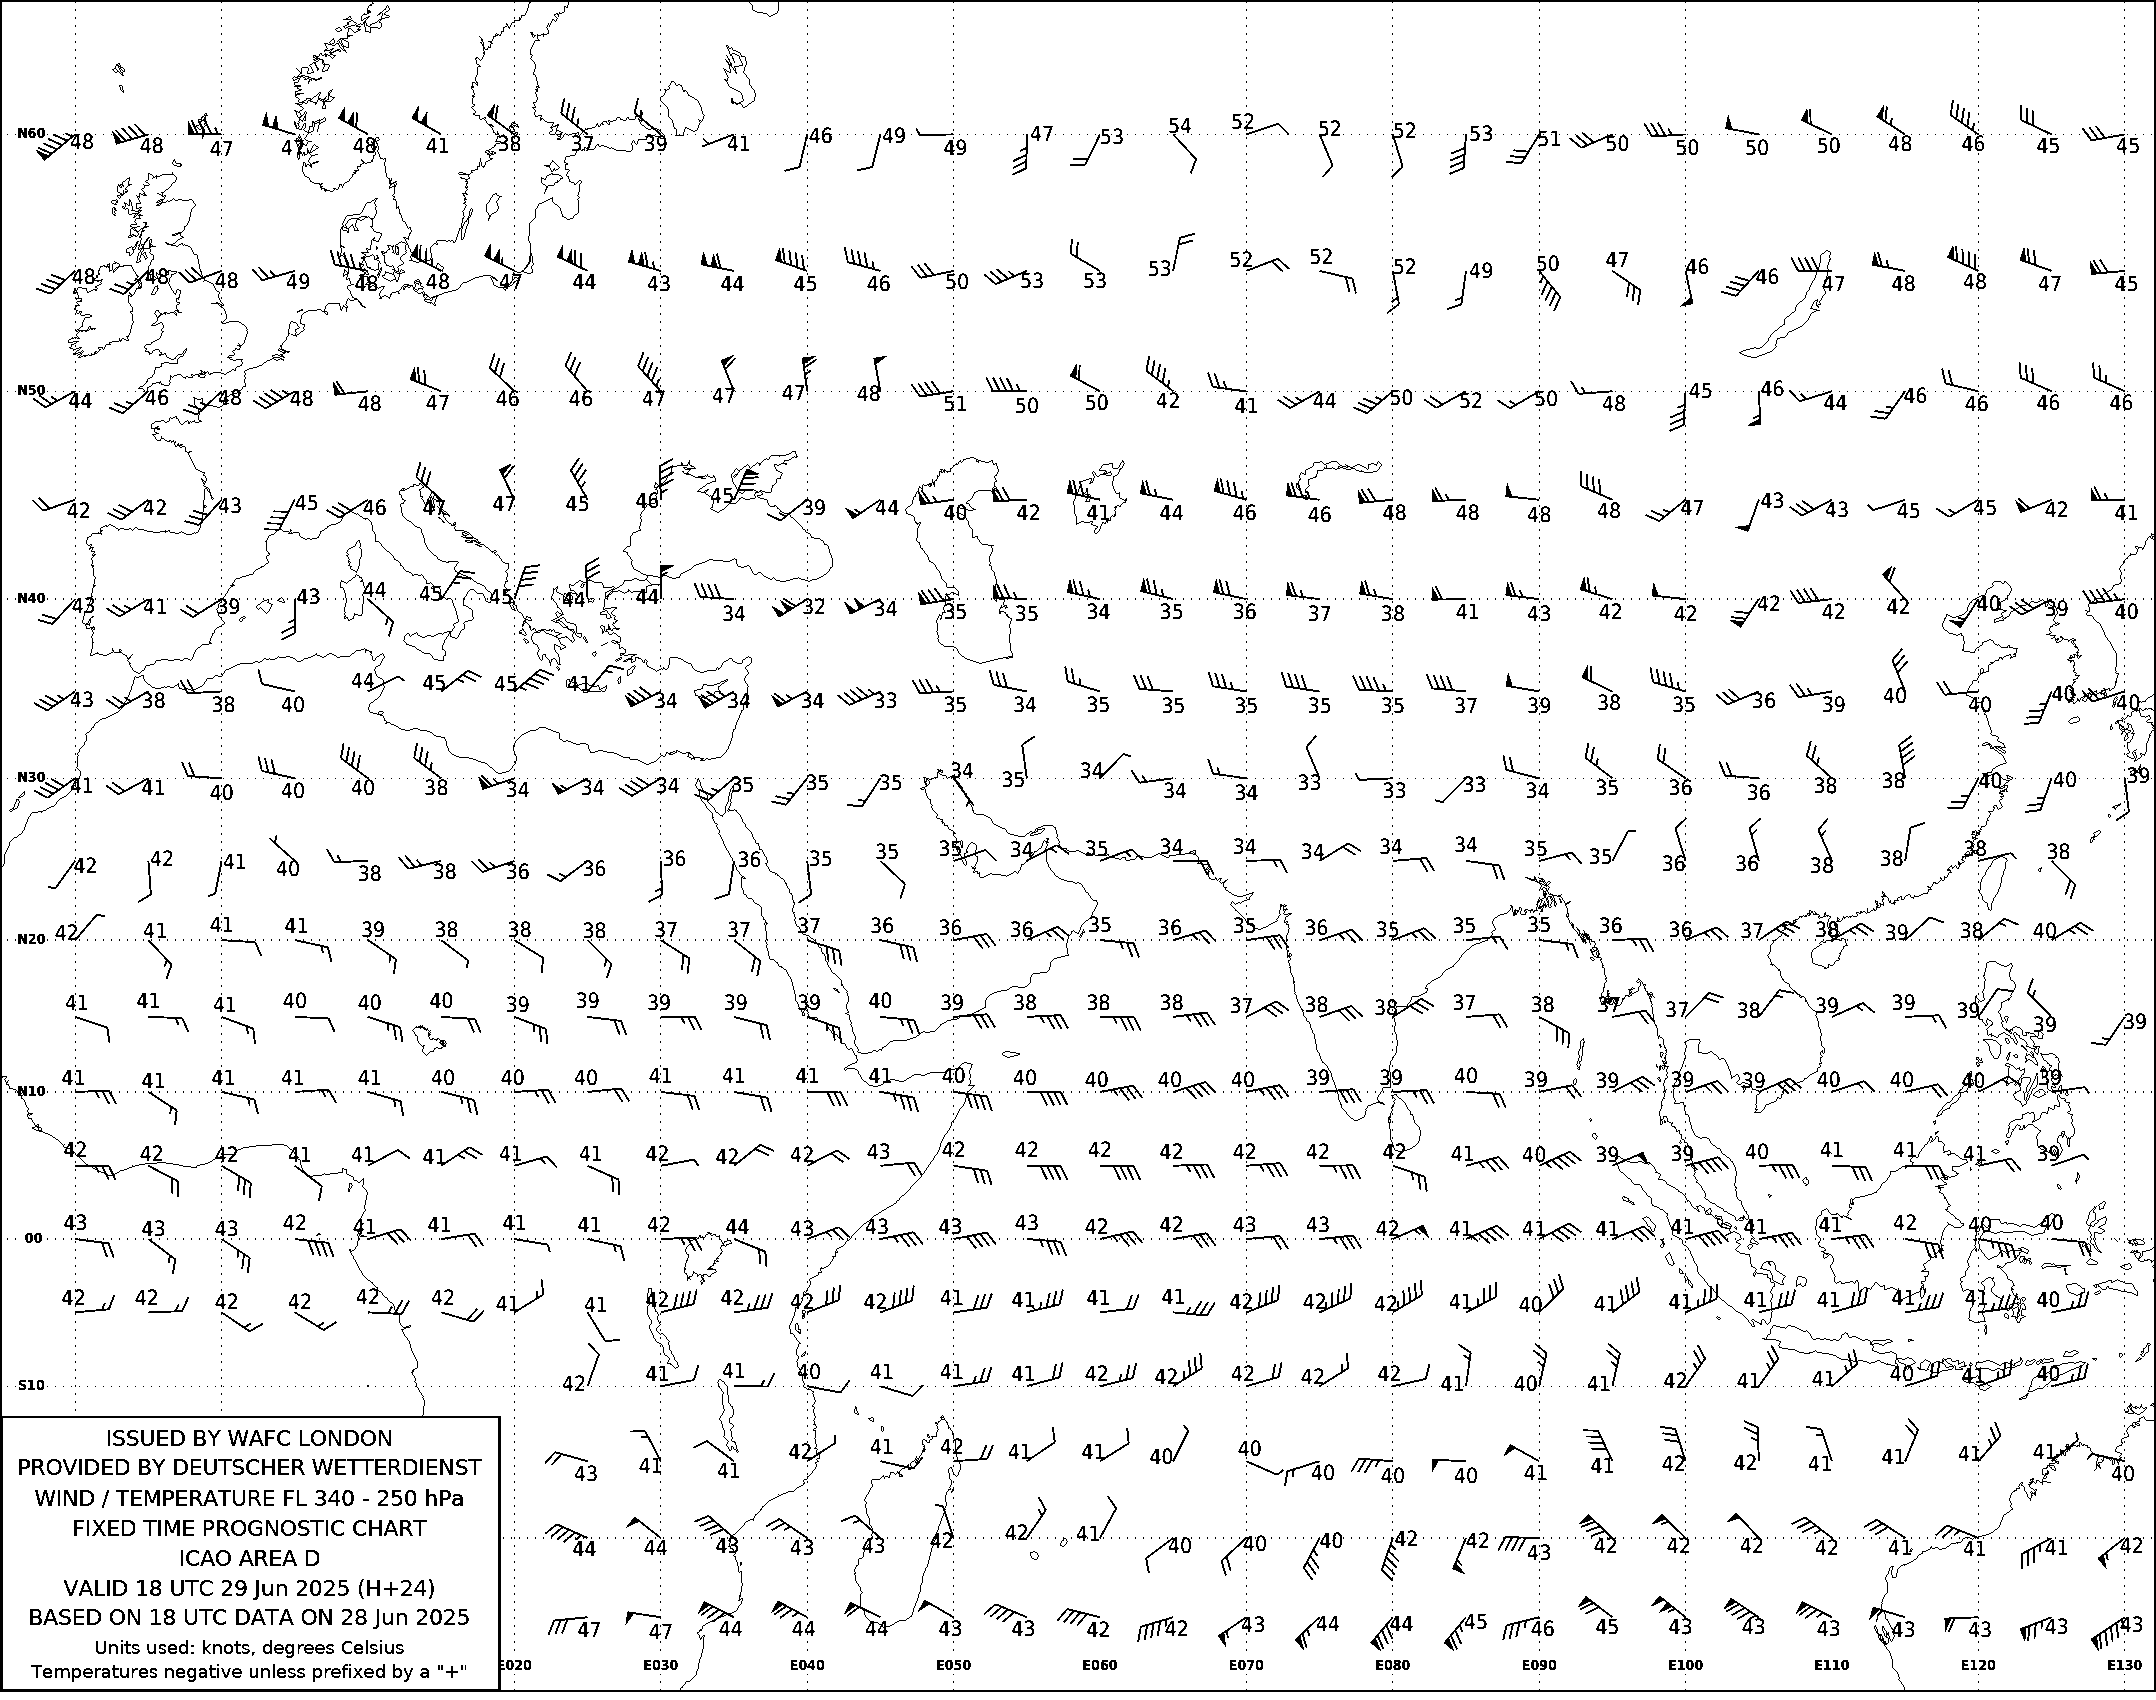 N60 48 48 47 47 48 41 38 37 39 41 46 49 49 47 53 54 52 52 52 53 51 50 50 50 50 48 46 45 45
48 48 48 49 48 48 47 44 43 44 45 46 50 53 53 53 52 52 52 49 50 47 46 46 47 48 48 47 45
N50 44 46 48 48 48 47 46 46 47 47 47 48 51 50 50 42 41 44 50 52 50 48 45 46 44 46 46 46 46
42 42 43 45 46 47 47 45 46 45 39 44 40 42 41 44 46 46 48 48 48 48 47 43 43 45 45 42 41
N40 43 41 39 43 44 45 45 44 44 34 32 34 35 35 34 35 36 37 38 41 43 42 42 42 42 42 40 39 40
43 38 38 40 44 45 45 41 34 34 34 33 35 34 35 35 35 35 35 37 39 38 35 36 39 40 40 40 40
N30 41 41 40 40 40 38 34 34 34 35 35 35 34 35 34 34 34 33 33 33 34 35 36 36 38 38 40 40 39
42 42 41 40 38 38 36 36 36 36 35 35 35 34 35 34 34 34 34 34 35 35 36 36 38 38 38 38
N20 42 41 41 41 39 38 38 38 37 37 37 36 36 36 35 36 35 36 35 35 35 36 36 37 38 39 38 40
41 41 41 40 40 40 39 39 39 39 39 40 39 38 38 38 37 38 38 37 38 37 37 38 39 39 39 39 39
N10 41 41 41 41 41 40 40 40 41 41 41 41 40 40 40 40 40 39 39 40 39 39 39 39 40 40 40 39
42 42 42 41 41 41 41 41 42 42 42 43 42 42 42 42 42 42 42 41 40 39 39 40 41 41 41 39
00 43 43 43 42 41 41 41 41 42 44 43 43 43 43 42 42 43 43 42 41 41 41 41 41 41 42 40 40
42 42 42 42 42 42 41 41 42 42 42 42 41 41 41 41 42 42 42 41 40 41 41 41 41 41 41 40
S10 42 41 41 40 41 41 41 42 42 42 42 42 41 40 41 42 41 41 40 41 40
43 41 41 42 41 42 41 41 40 40 40 40 40 41 41 42 42 41 41 41 41 40
44 44 43 43 43 42 42 41 40 40 40 42 42 43 42 42 42 42 41 41 41 42
47 47 44 44 44 43 43 42 42 43 44 44 45 46 45 43 43 43 43 43 43 43
E020 E030 E040 E050 E060 E070 E080 E090 E100 E110 E120 E130
ISSUED BY WAFC LONDON
PROVIDED BY DEUTSCHER WETTERDIENST
WIND / TEMPERATURE FL 340 - 250 hPa
FIXED TIME PROGNOSTIC CHART
ICAO AREA D
VALID 18 UTC 29 Jun 2025 (H+24)
BASED ON 18 UTC DATA ON 28 Jun 2025
Units used: knots, degrees Celsius
Temperatures negative unless prefixed by a "+"